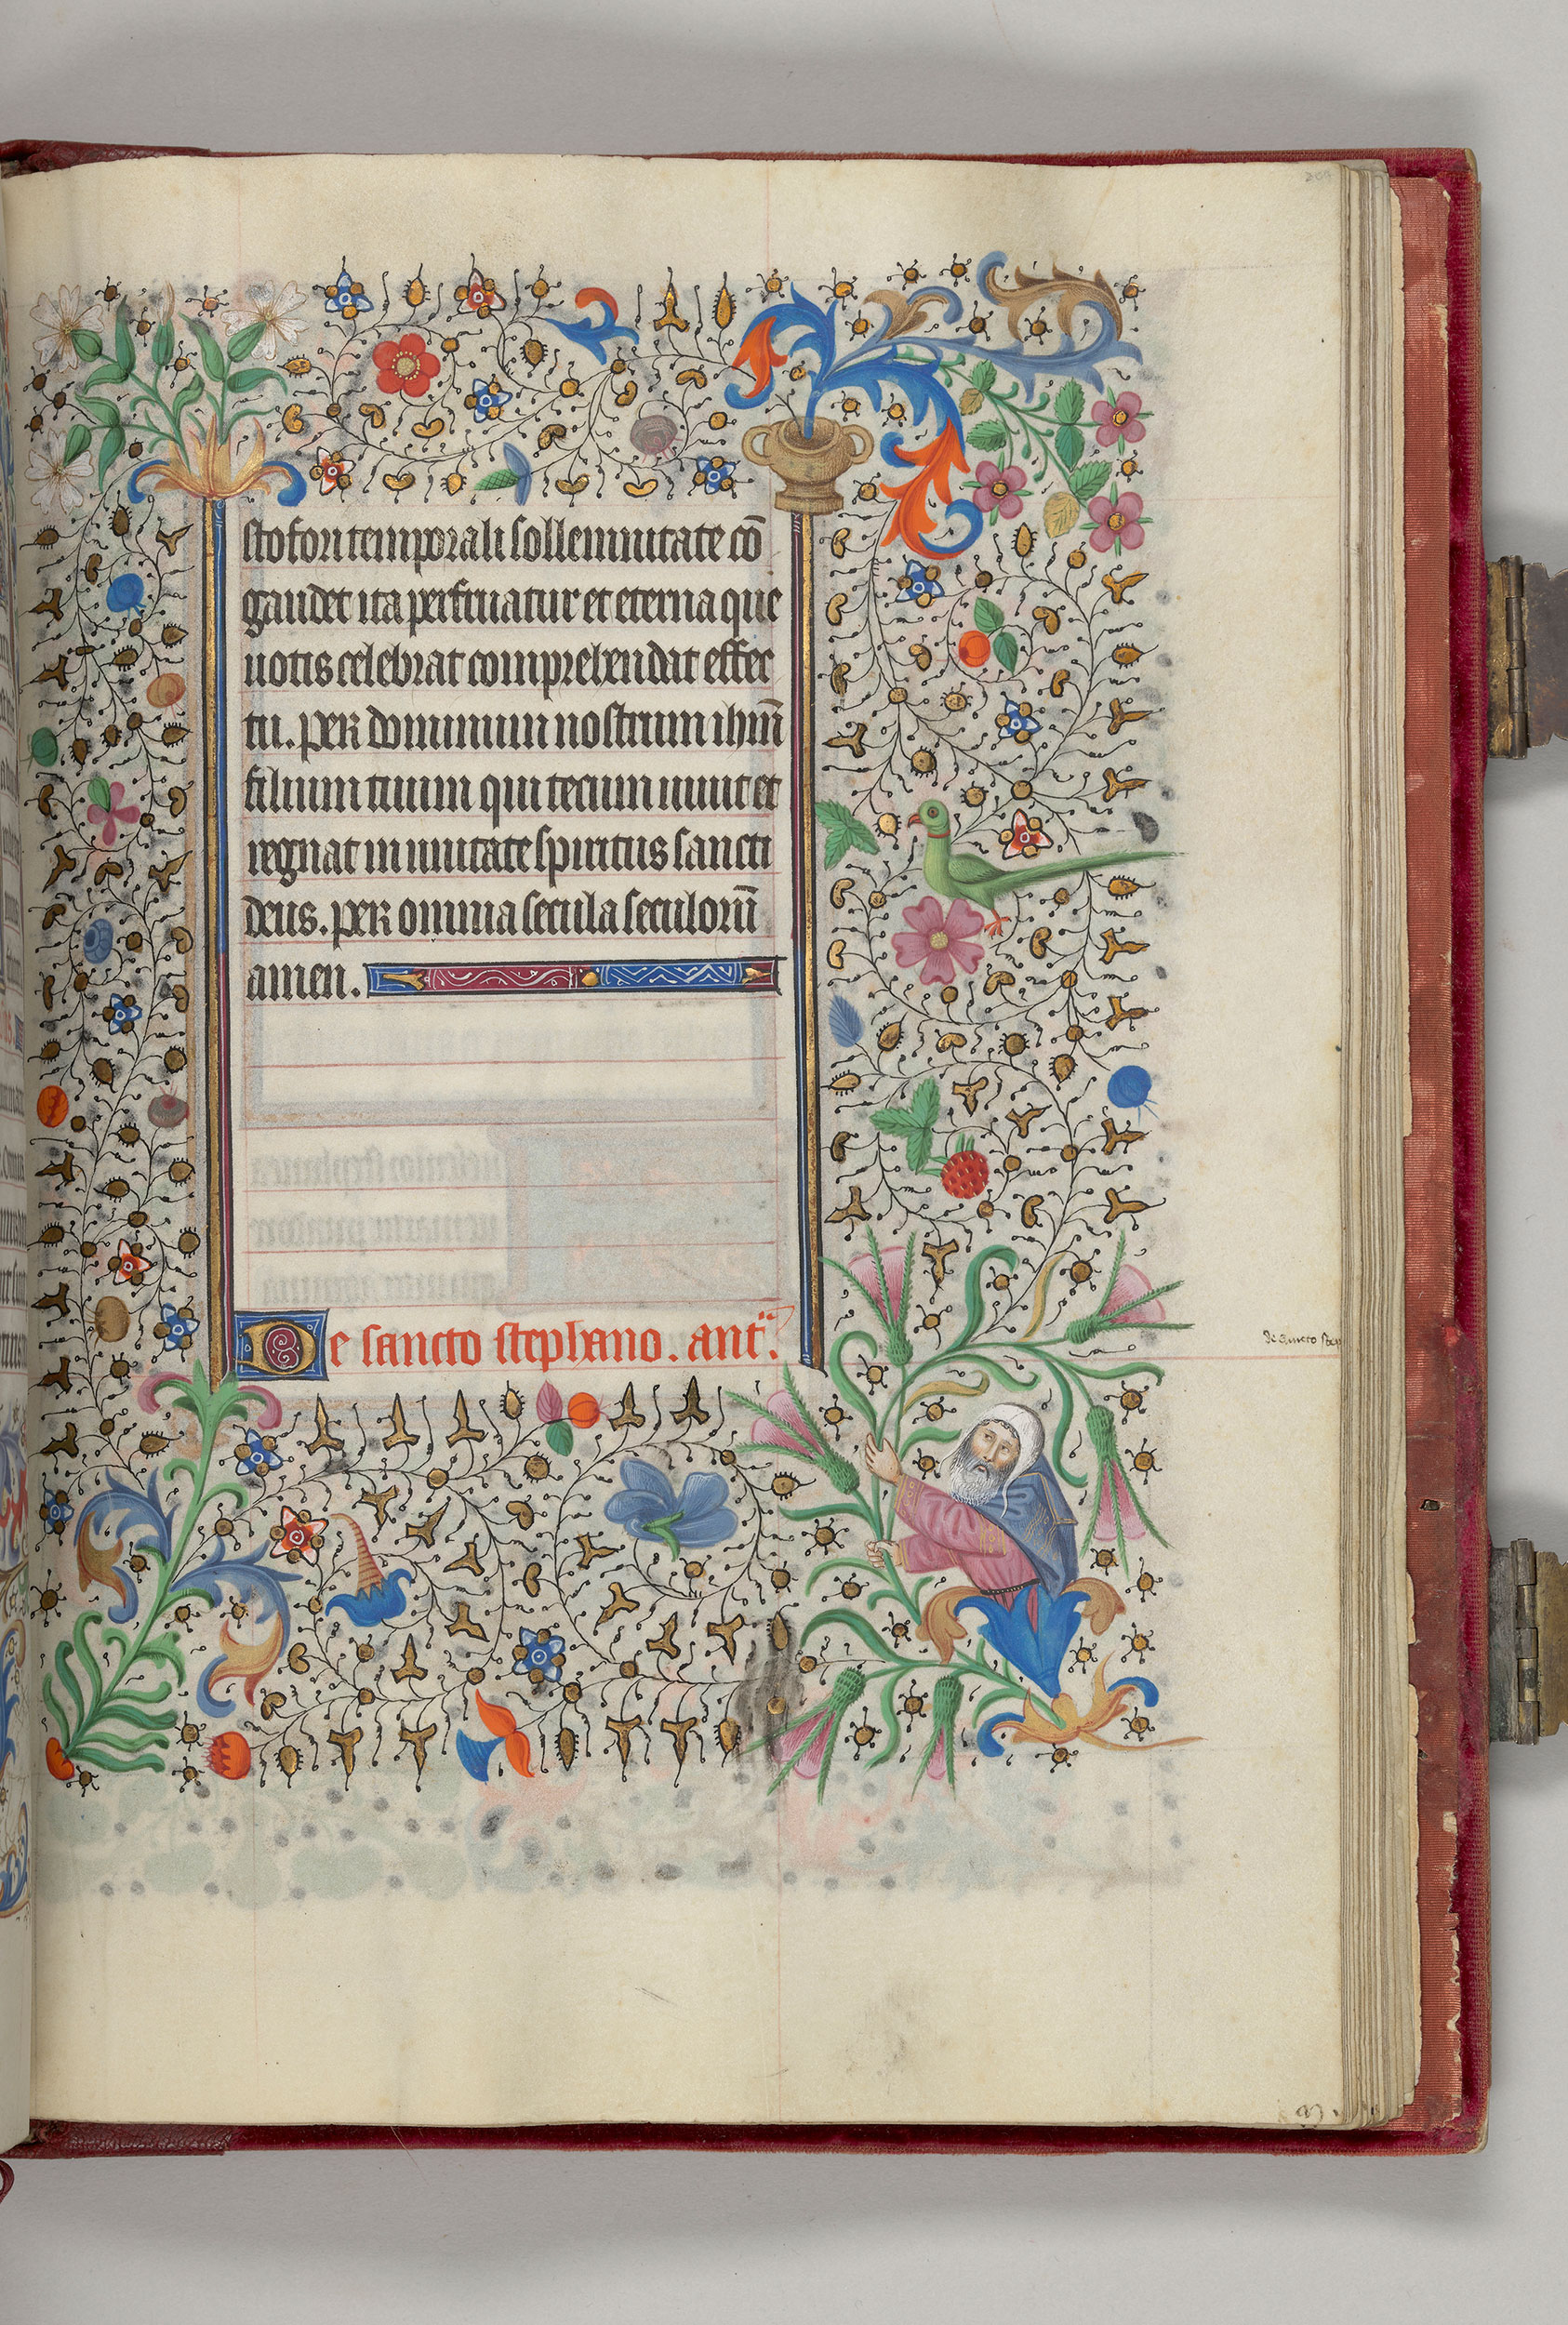 stofori temporali sollemnitate cō
gaudet ita perfruatur et eterna que
uotis celebrat comprehendat effec
tu. per dominum nostrum ihm̄
filium tuum qui tecum uiuit et
regnat in unitate spiritus sancti
deus. per omnia secula seculorū
amen.
De sancto stephano. ant̄.
de sancto ste